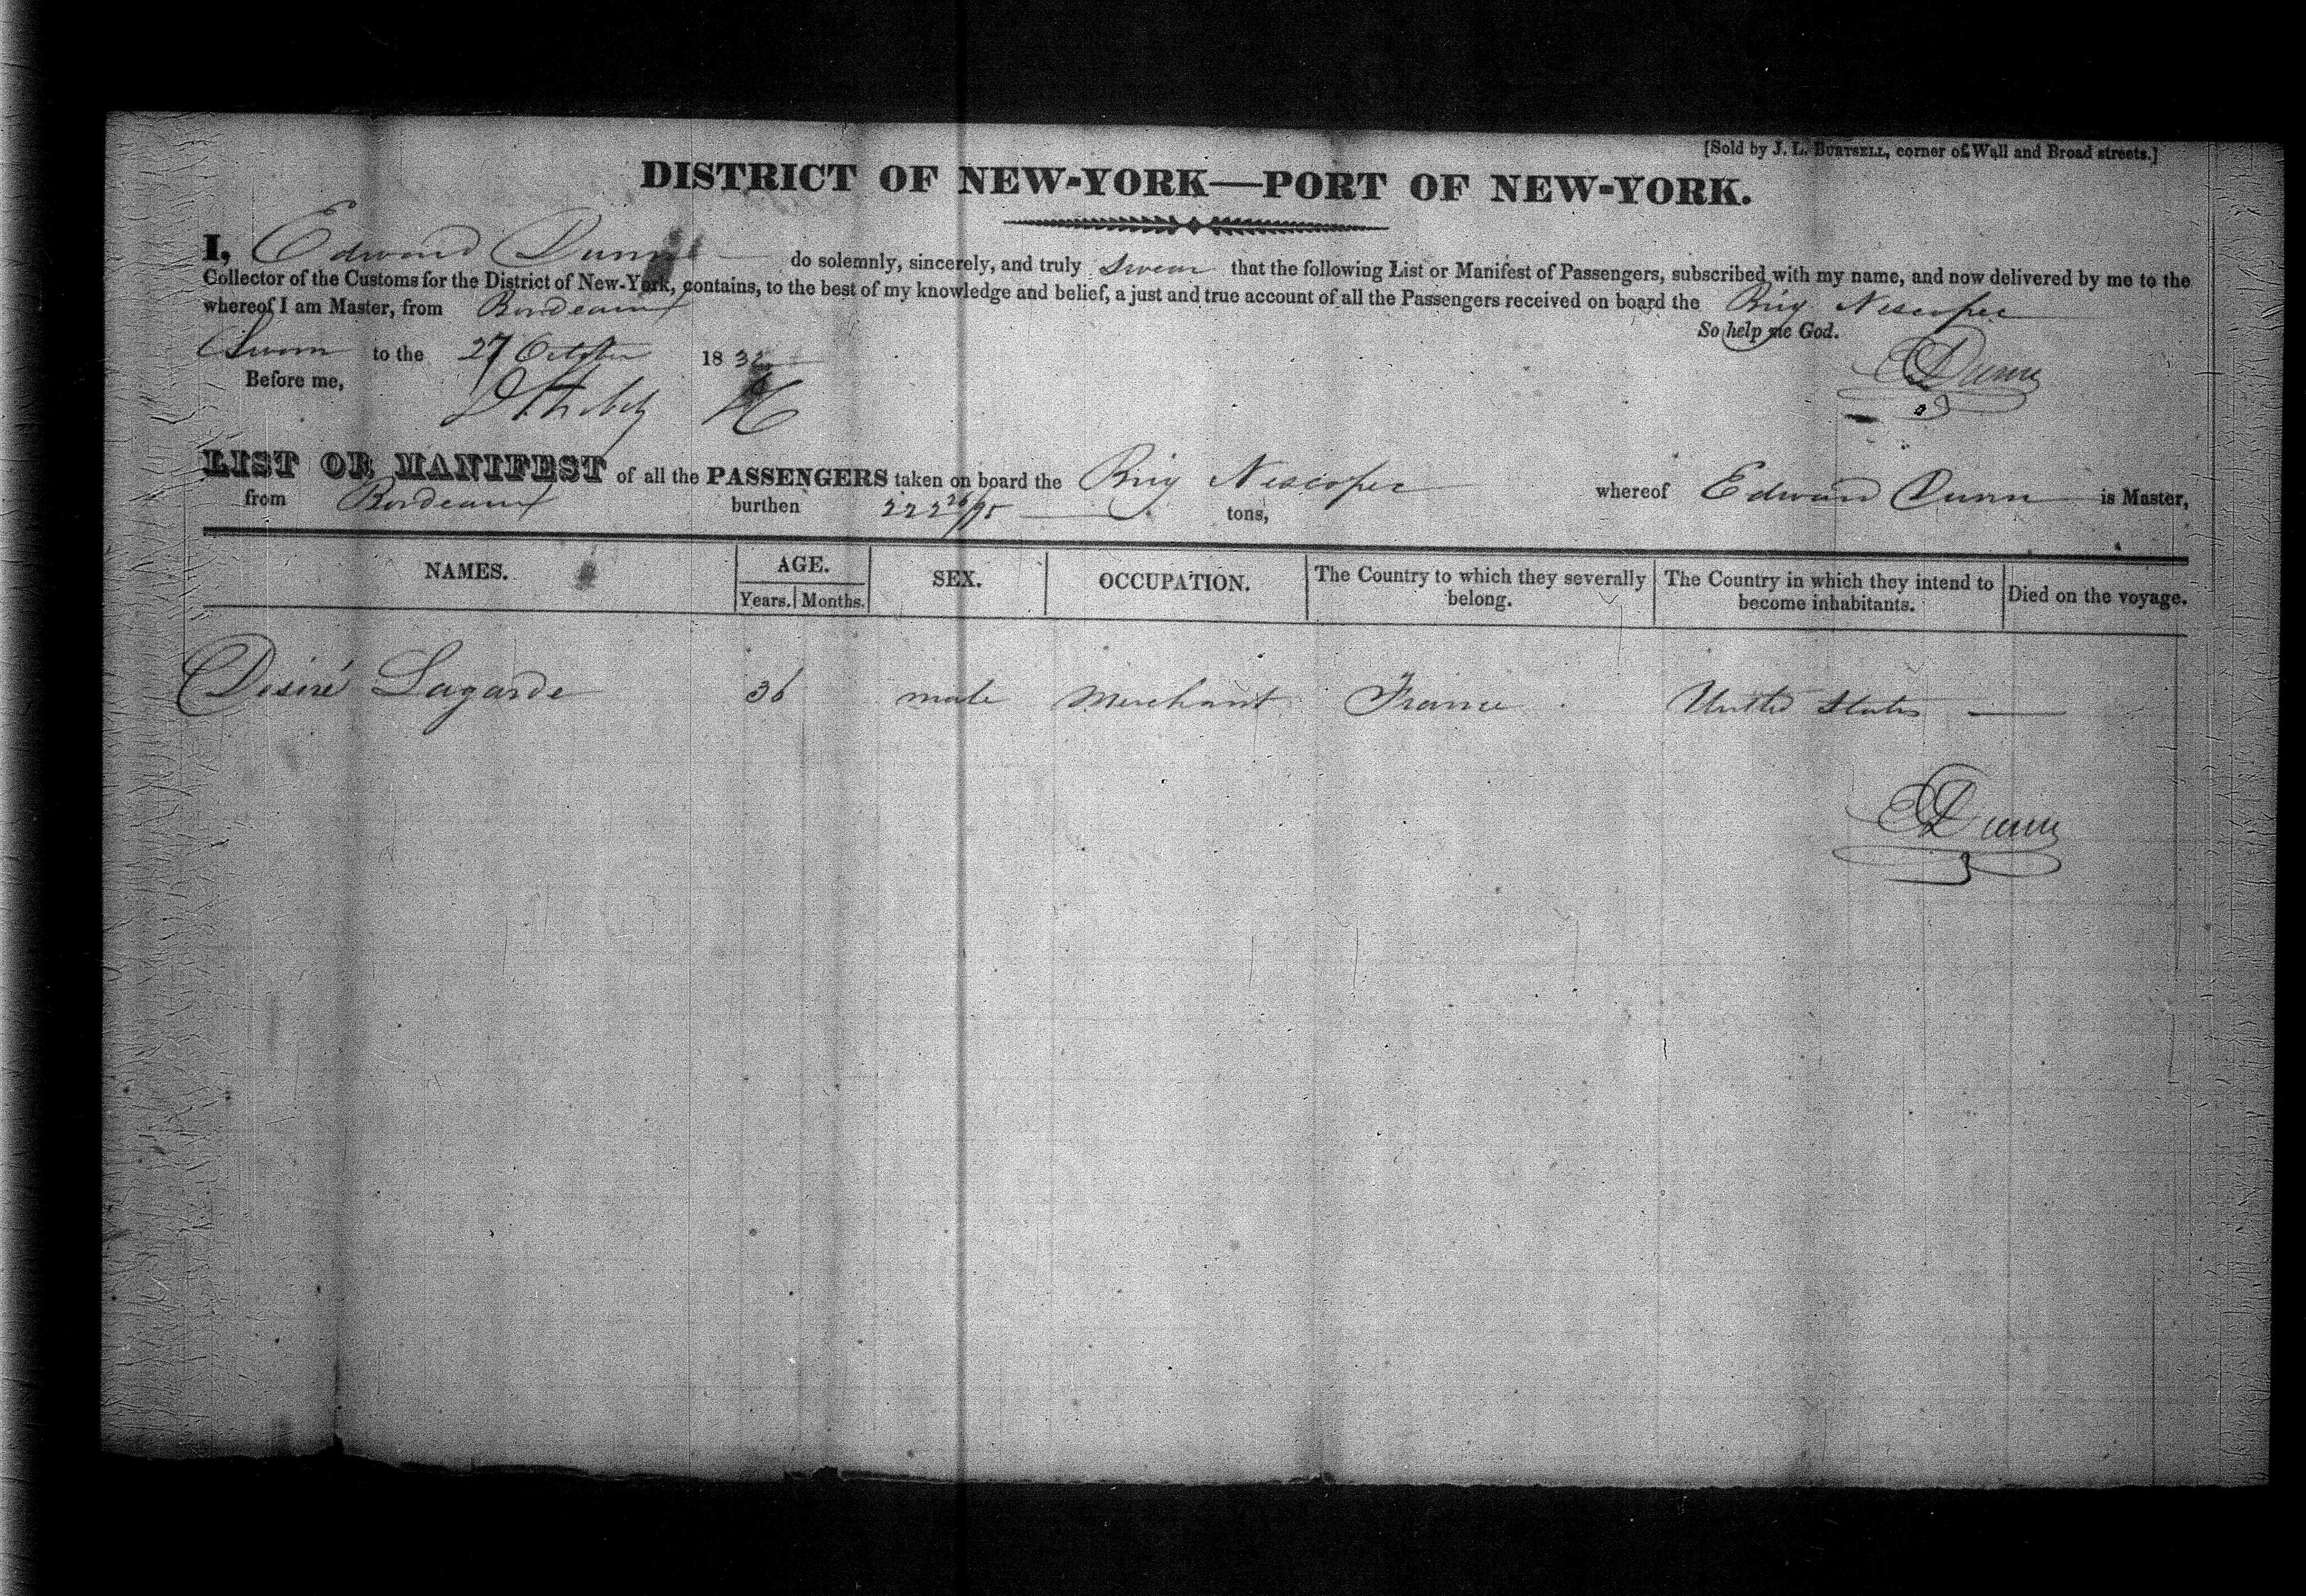 [Sold by J. L. BURTSELL, corner of Wall and Broad streets.]
DISTRICT OF NEW-YORK—PORT OF NEW-YORK.
I, Edward Dunn do solemnly, sincerely, and truly swear that the following List or Manifest of Passengers, subscribed with my name, and now delivered by me to the
Collector of the Customs for the District of New-York, contains, to the best of my knowledge and belief, a just and true account of all the Passengers received on board the Brig Nescopec
whereof I am Master, from Bordeaux
So help me God.
Sworn to the 27 October 1832
E Dunn
Before me,
LIST OR MANIFEST of all the PASSENGERS taken on board the Brig Nescopec whereof Edward Dunn is Master,
from Bordeaux burthen 222 26/95 tons,
NAMES. AGE. SEX. OCCUPATION. The Country to which they severally belong. The Country in which they intend to become inhabitants. Died on the voyage.
Years. Months.
Desiré Lagarde 36 male Merchant France United States —
E Dunn